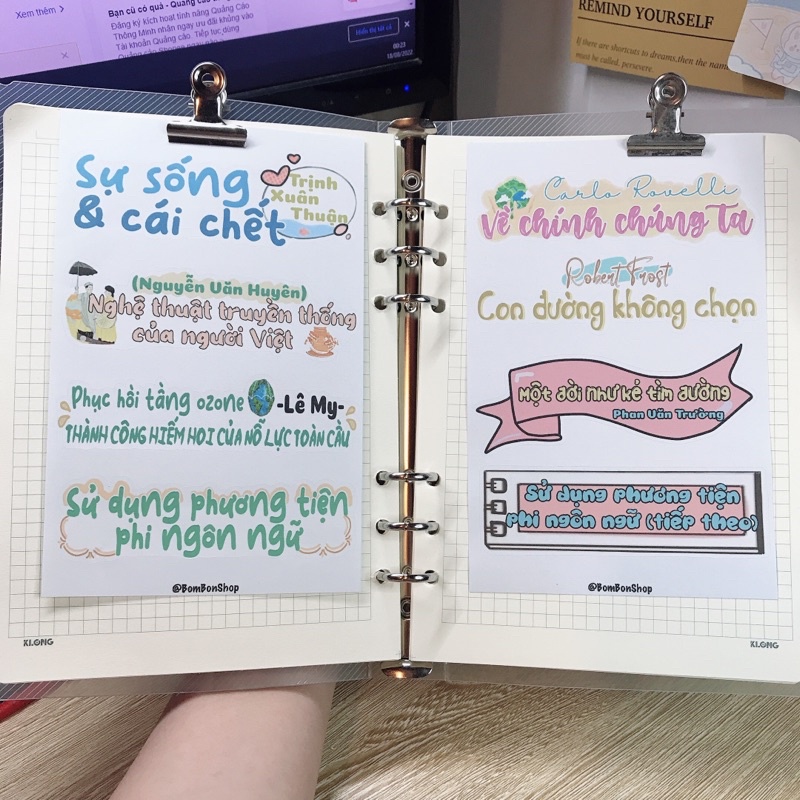 Bạn cũ có quà - Quảng cáo
Đăng ký kích hoạt tính năng Quảng Cáo
Thông Minh nhận ngay ưu đãi khủng vào
Tài khoản Quảng cáo. Tiếp tục dùng
Quảng cáo Shopee ngay
Hiển thị tất cả
00:23
10/09/2022
REMIND YOURSELF
If there are shortcuts to dreams,then the name
must be called, persevere
Sự sống
& cái chết
Trịnh
Xuân
Thuận
(Nguyễn Văn Huyên)
Nghệ thuật truyền thống
của người Việt
Phục hồi tầng ozone -Lê My-
THÀNH CÔNG HIẾM HOI CỦA NỖ LỰC TOÀN CẦU
Sử dụng phương tiện
phi ngôn ngữ
@BomBonShop
KLONG
Carlo Rovelli
Về chính chúng Ta
Robert Frost
Con đường không chọn
Một đời như kẻ tìm đường
Phan Văn Trường
Sử dụng phương tiện
phi ngôn ngữ (tiếp theo)
@BomBonShop
KLONG